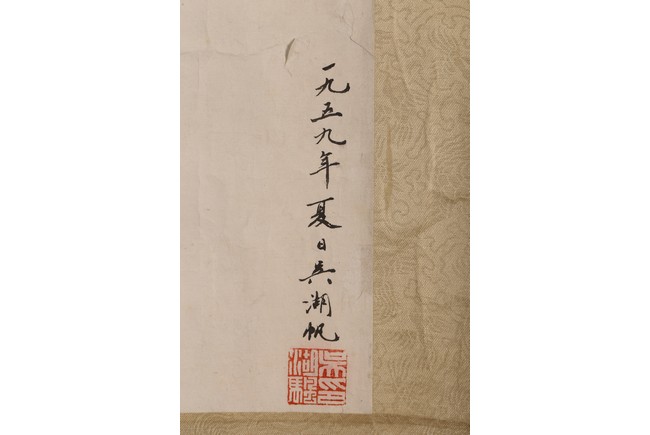 一九五九年夏日吳湖帆
吳湖帆印